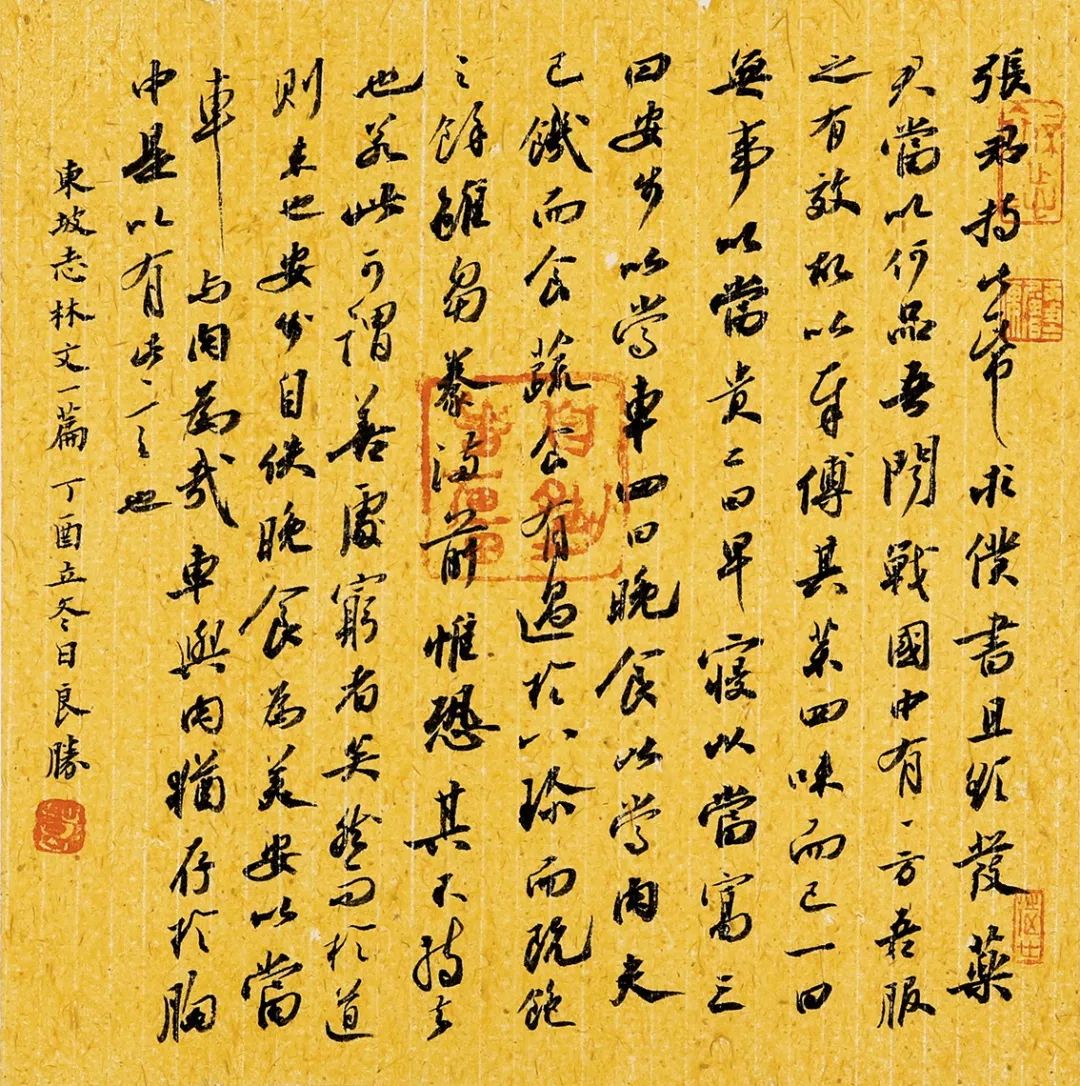 張君持此帋求僕書且欲發藥
君當以何品吾聞戰國中有一方吾服
之有效故以奉傅其藥四味而已一曰
無事以當貴二曰早寢以當富三
曰安步以當車四曰晚食以當肉夫
已饑而食蔬食有過於八珍而既飽
之餘雖芻豢滿前惟恐其不持去
也若此可謂善處窮者矣然而於道
則未也安步自佚晚食為美安以當
車与肉為哉車與肉猶存於胸
中是以有此言也
東坡志林文一篇丁酉立冬日良勝